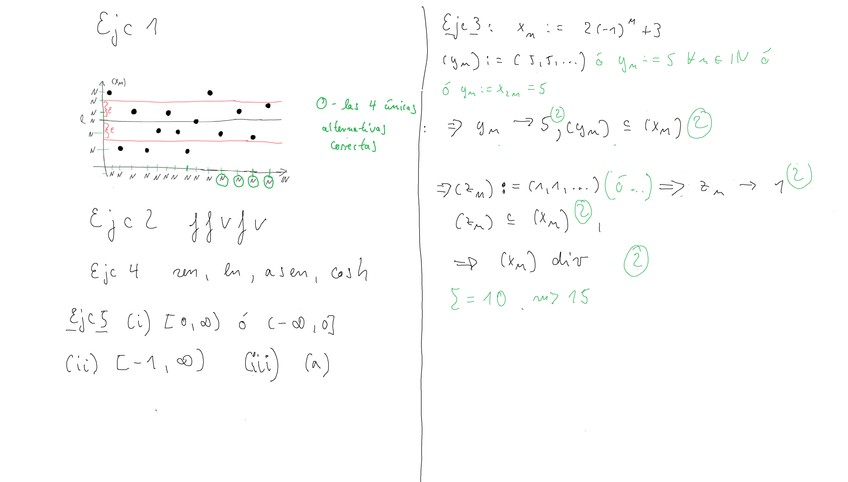 Ejc 1
(xₙ)
N
N
N
N
N
ℓ
ξ
ξ
N N N N N N N N N N N N N
IN
O - las 4 únicas
alternativas
correctas
Ejc 2 f f v f v
Ejc 4 sen, ln, asen, cosh
Ejc 5 (i) [0, ∞) ó (-∞, 0]
(ii) [-1, ∞) (iii) (a)
Ejc 3: xₙ := 2(-1)ⁿ + 3
(yₙ) := (5, 5, ...) ó yₙ := 5 ∀n ∈ IN ó
ó yₙ := x₂ₙ = 5
: ⇒ yₙ → 5 ②, (yₙ) ⊆ (xₙ) ②
⇒ (zₙ) := (1, 1, ...) (ó ...) ⇒ zₙ → 1 ②
(zₙ) ⊆ (xₙ) ②,
⇒ (xₙ) div ②
Σ = 10 ⇝ 15